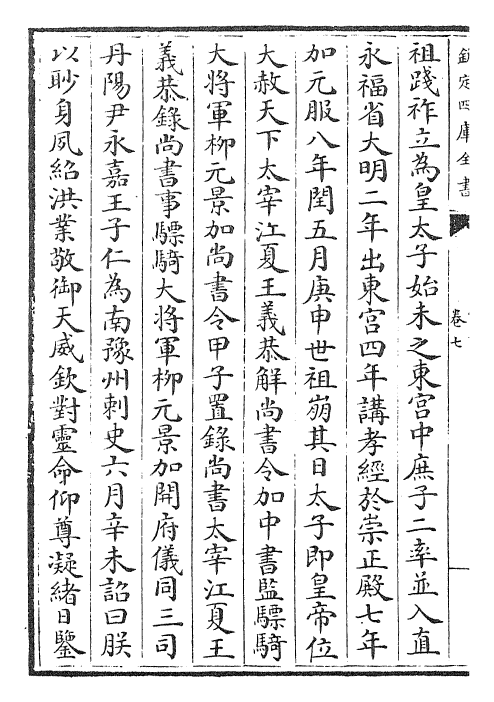 欽定四庫全書
卷七
祖踐祚立為皇太子始未之東宮中庶子二率並入直
永福省大明二年出東宮四年講孝經於崇正殿七年
加元服八年閏五月庚申世祖崩其日太子即皇帝位
大赦天下太宰江夏王義恭解尚書令加中書監驃騎
大將軍柳元景加尚書令甲子置錄尚書太宰江夏王
義恭錄尚書事驃騎大將軍柳元景加開府儀同三司
丹陽尹永嘉王子仁為南豫州刺史六月辛未詔曰朕
以眇身夙紹洪業敬御天威欽對靈命仰尊凝緒日鑒